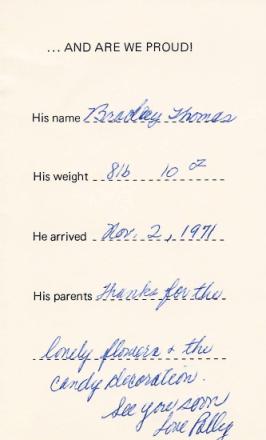 ... AND ARE WE PROUD!
His name Bradley Thomas
His weight 8lb 10 oz
He arrived Nov. 2, 1971
His parents Thanks for the
lovely flowers & the
candy decoration.
See you soon
Love Patty